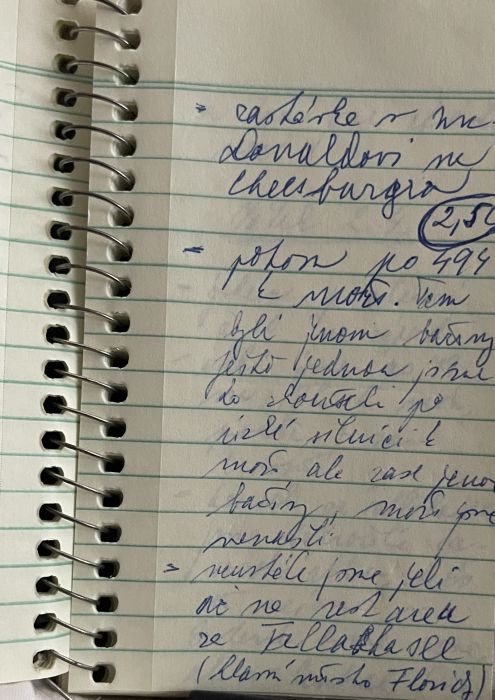 - zastávka v Mc.
Donaldovi na
Cheesburgra
2,50
- potom po 494
k moři. Tam
byli jenom bažiny
ještě jednou jsme
to zkoušeli po
úzké silnici k
moři ale zase jenom
bažiny, moře jsme
nenašli.
- neustále jsme jeli
až na rest area
za Tallahasee
(hlavní město Floridy)